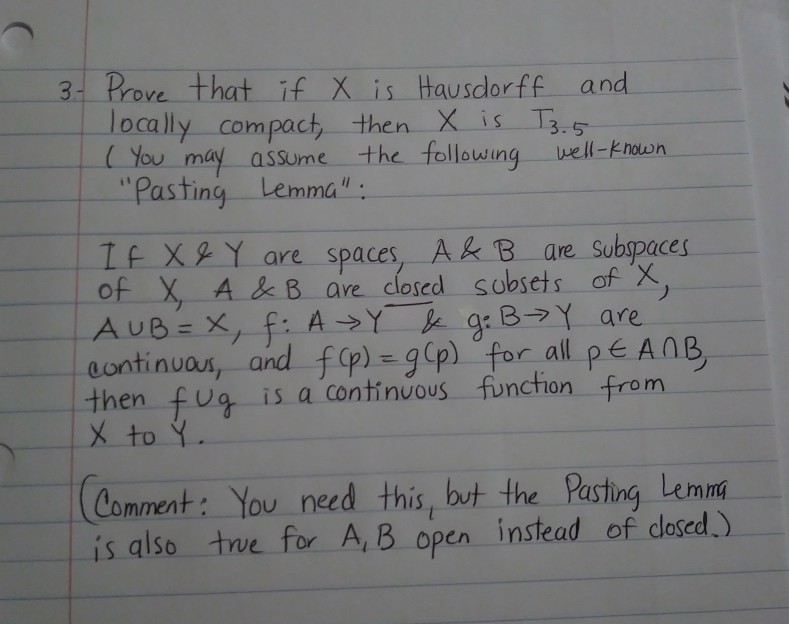 3- Prove that if X is Hausdorff and
locally compact, then X is T3.5
( You may assume the following well-known
"Pasting Lemma":
If X & Y are spaces, A & B are subspaces
of X, A & B are closed subsets of X,
A∪B = X, f: A → Y & g: B → Y are
continuous, and f(p) = g(p) for all p ∈ A∩B,
then f∪g is a continuous function from
X to Y.
(Comment: You need this, but the Pasting Lemma
is also true for A, B open instead of closed.)